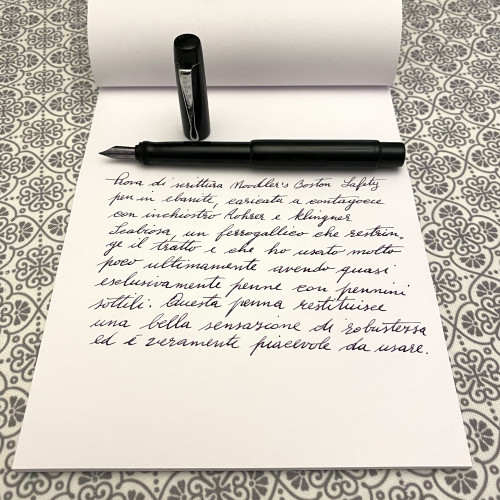 Prova di scrittura Noodler's Boston Safety
pen in ebanite, caricata a contagocce
con inchiostro Rohrer e Klingner
Scabiosa, un ferrogallico che restrin-
ge il tratto e che ho usato molto
poco ultimamente avendo quasi
esclusivamente penne con pennini
sottili. Questa penna restituisce
una bella sensazione di robustezza
ed è veramente piacevole da usare.